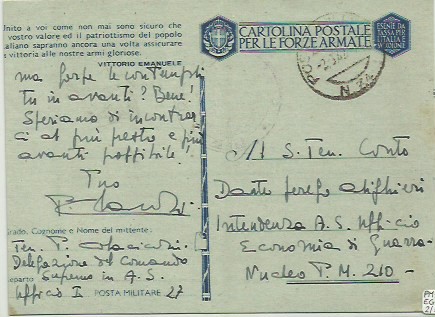 Unito a voi come non mai sono sicuro che
vostro valore ed il patriottismo del popolo
italiano sapranno ancora una volta assicurare
vittoria alle nostre armi gloriose.
VITTORIO EMANUELE
ma forse le contempli
tu in avanti? Bene!
Speriamo di incontrar
ci al più presto e più
avanti possibile!
Tuo
CARTOLINA POSTALE
PER LE FORZE ARMATE
ESENTE DA
TASSA PER
L'ITALIA E
Al S. Ten. Conto
Dante
Intendenza A.S. Ufficio
Economia di Guerra
Nucleo P.M. 210 -
Grado, Cognome e Nome del mittente
Ten. P.
Delegazione del Comando
Reparto Supremo in A.S.
Ufficio I POSTA MILITARE 27
PM
EG
2/